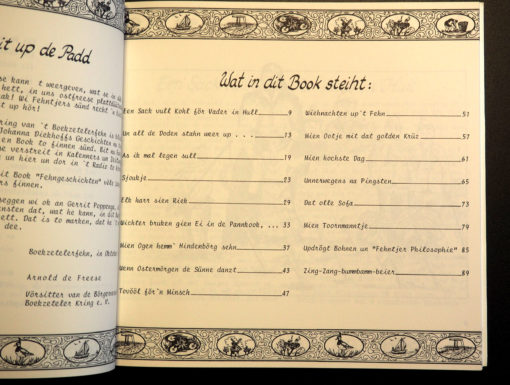 it up de Padd
se kann 't weergeven, wat se in
hett, in uns ostfreese
ak! Wi Fehntjers sünd recht
t up hör!
ring van 't Boekzetelerfehn is
Johanna Diekhoffs Geschichten
en Book to finnen sünd. Bit nu
se verstreit in Kalenners un
g un hier un dor in 't Radio to
it Book "Fehngeschichten"
rs finnen.
seggen wi ok an Gerrit
ensten dat, wat he kann, in dit
ett. Dat is to marken, dat he
dee.
Boekzetelerfehn, in
Arnold de Freese
Vörsitter van de
Boekzeteler Kring e. V.
Wat in dit Book steiht:
ten Sack vull Kohl för Vader in Hull 9
Un all de Doden stahn weer up . . . 13
As ik mal legen sull 19
Sjoukje 23
Elk harr sien Riek 29
Wichter bruken gien Ei in de Pannkook, ... 33
Mien Ogen hemm' Hindenbörg sehn 37
Wenn Ostermörgen de Sünne danzt 43
Tovööl för'n Minsch 47
Wiehnachten up't Fehn 51
Mien Ootje mit dat golden Krüz 57
Mien hochste Dag 61
Unnerwegens na Pingsten 65
Dat olle Sofa 73
Mien Toornmanntje 79
Updrögt Bohnen un "Fehntjer Philosophie" 85
Zing-Zang-bummbamm-beier 89